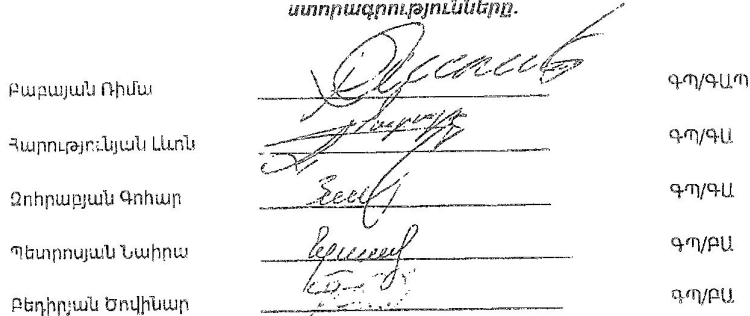 ստորագրությունները.
Բաբայան Ռիմա ԳՊ/ԳԱՊ
Հարությունյան Լևոն ԳՊ/ԳԱ
Զոհրաբյան Գոհար ԳՊ/ԳԱ
Պետրոսյան Նաիրա ԳՊ/ԲԱ
Բեդիրյան Ծովինար ԳՊ/ԲԱ